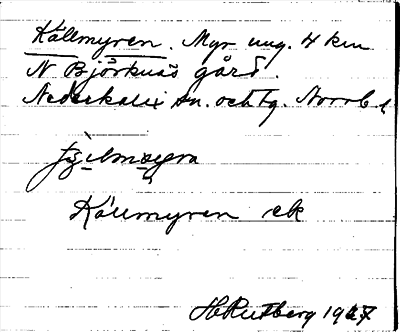 Källmyren. Myr ung. 4 km
N Björknäs gård.
Nederkalix sn. och tg. Norrb. l
Källmyren ek
HRutberg 1927